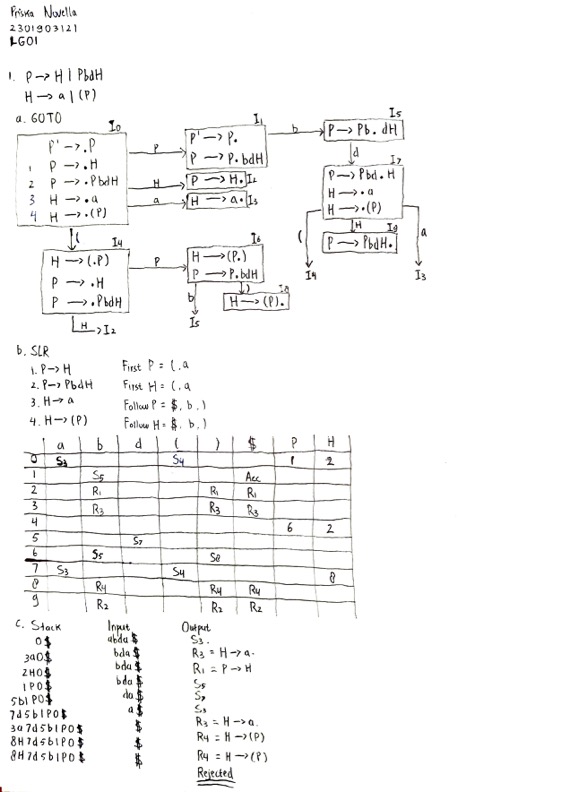 Priska Novella
2301903121
LG01
1. P → H | PbdH
H → a | (P)
a. GOTO
I0
P' → .P
1 P → .H
2 P → .PbdH
3 H → .a
4 H → .(P)
P
H
a
(
I1
P' → P.
P → P.bdH
b
P → H. I2
H → a. I3
I5
P → Pb.dH
d
I7
P → Pbd.H
H → .a
H → .(P)
(
H
a
I4
I9
P → PbdH.
I3
I4
H → (.P)
P → .H
P → .PbdH
P
H → I2
I6
H → (P.)
P → P.bdH
b
)
I5
I8
H → (P).
b. SLR
1. P → H First P = (, a
2. P → PbdH First H = (, a
3. H → a Follow P = $, b, )
4. H → (P) Follow H = $, b, )
a b d ( ) $ P H
0 S3 S4 1 2
1 S5 Acc
2 R1 R1 R1
3 R3 R3 R3
4 6 2
5 S7
6 S5 S8
7 S3 S4 8
8 R4 R4 R4
9 R2 R2 R2
c. Stack Input Output
0$ abda$ S3.
3a0$ bda$ R3 = H → a.
2H0$ bda$ R1 = P → H
1P0$ bda$ S5
5b1P0$ da$ S7
7d5b1P0$ a$ S3
3a7d5b1P0$ $ R3 = H → a.
8H7d5b1P0$ $ R4 = H → (P)
8H7d5b1P0$ $ R4 = H → (P)
Rejected